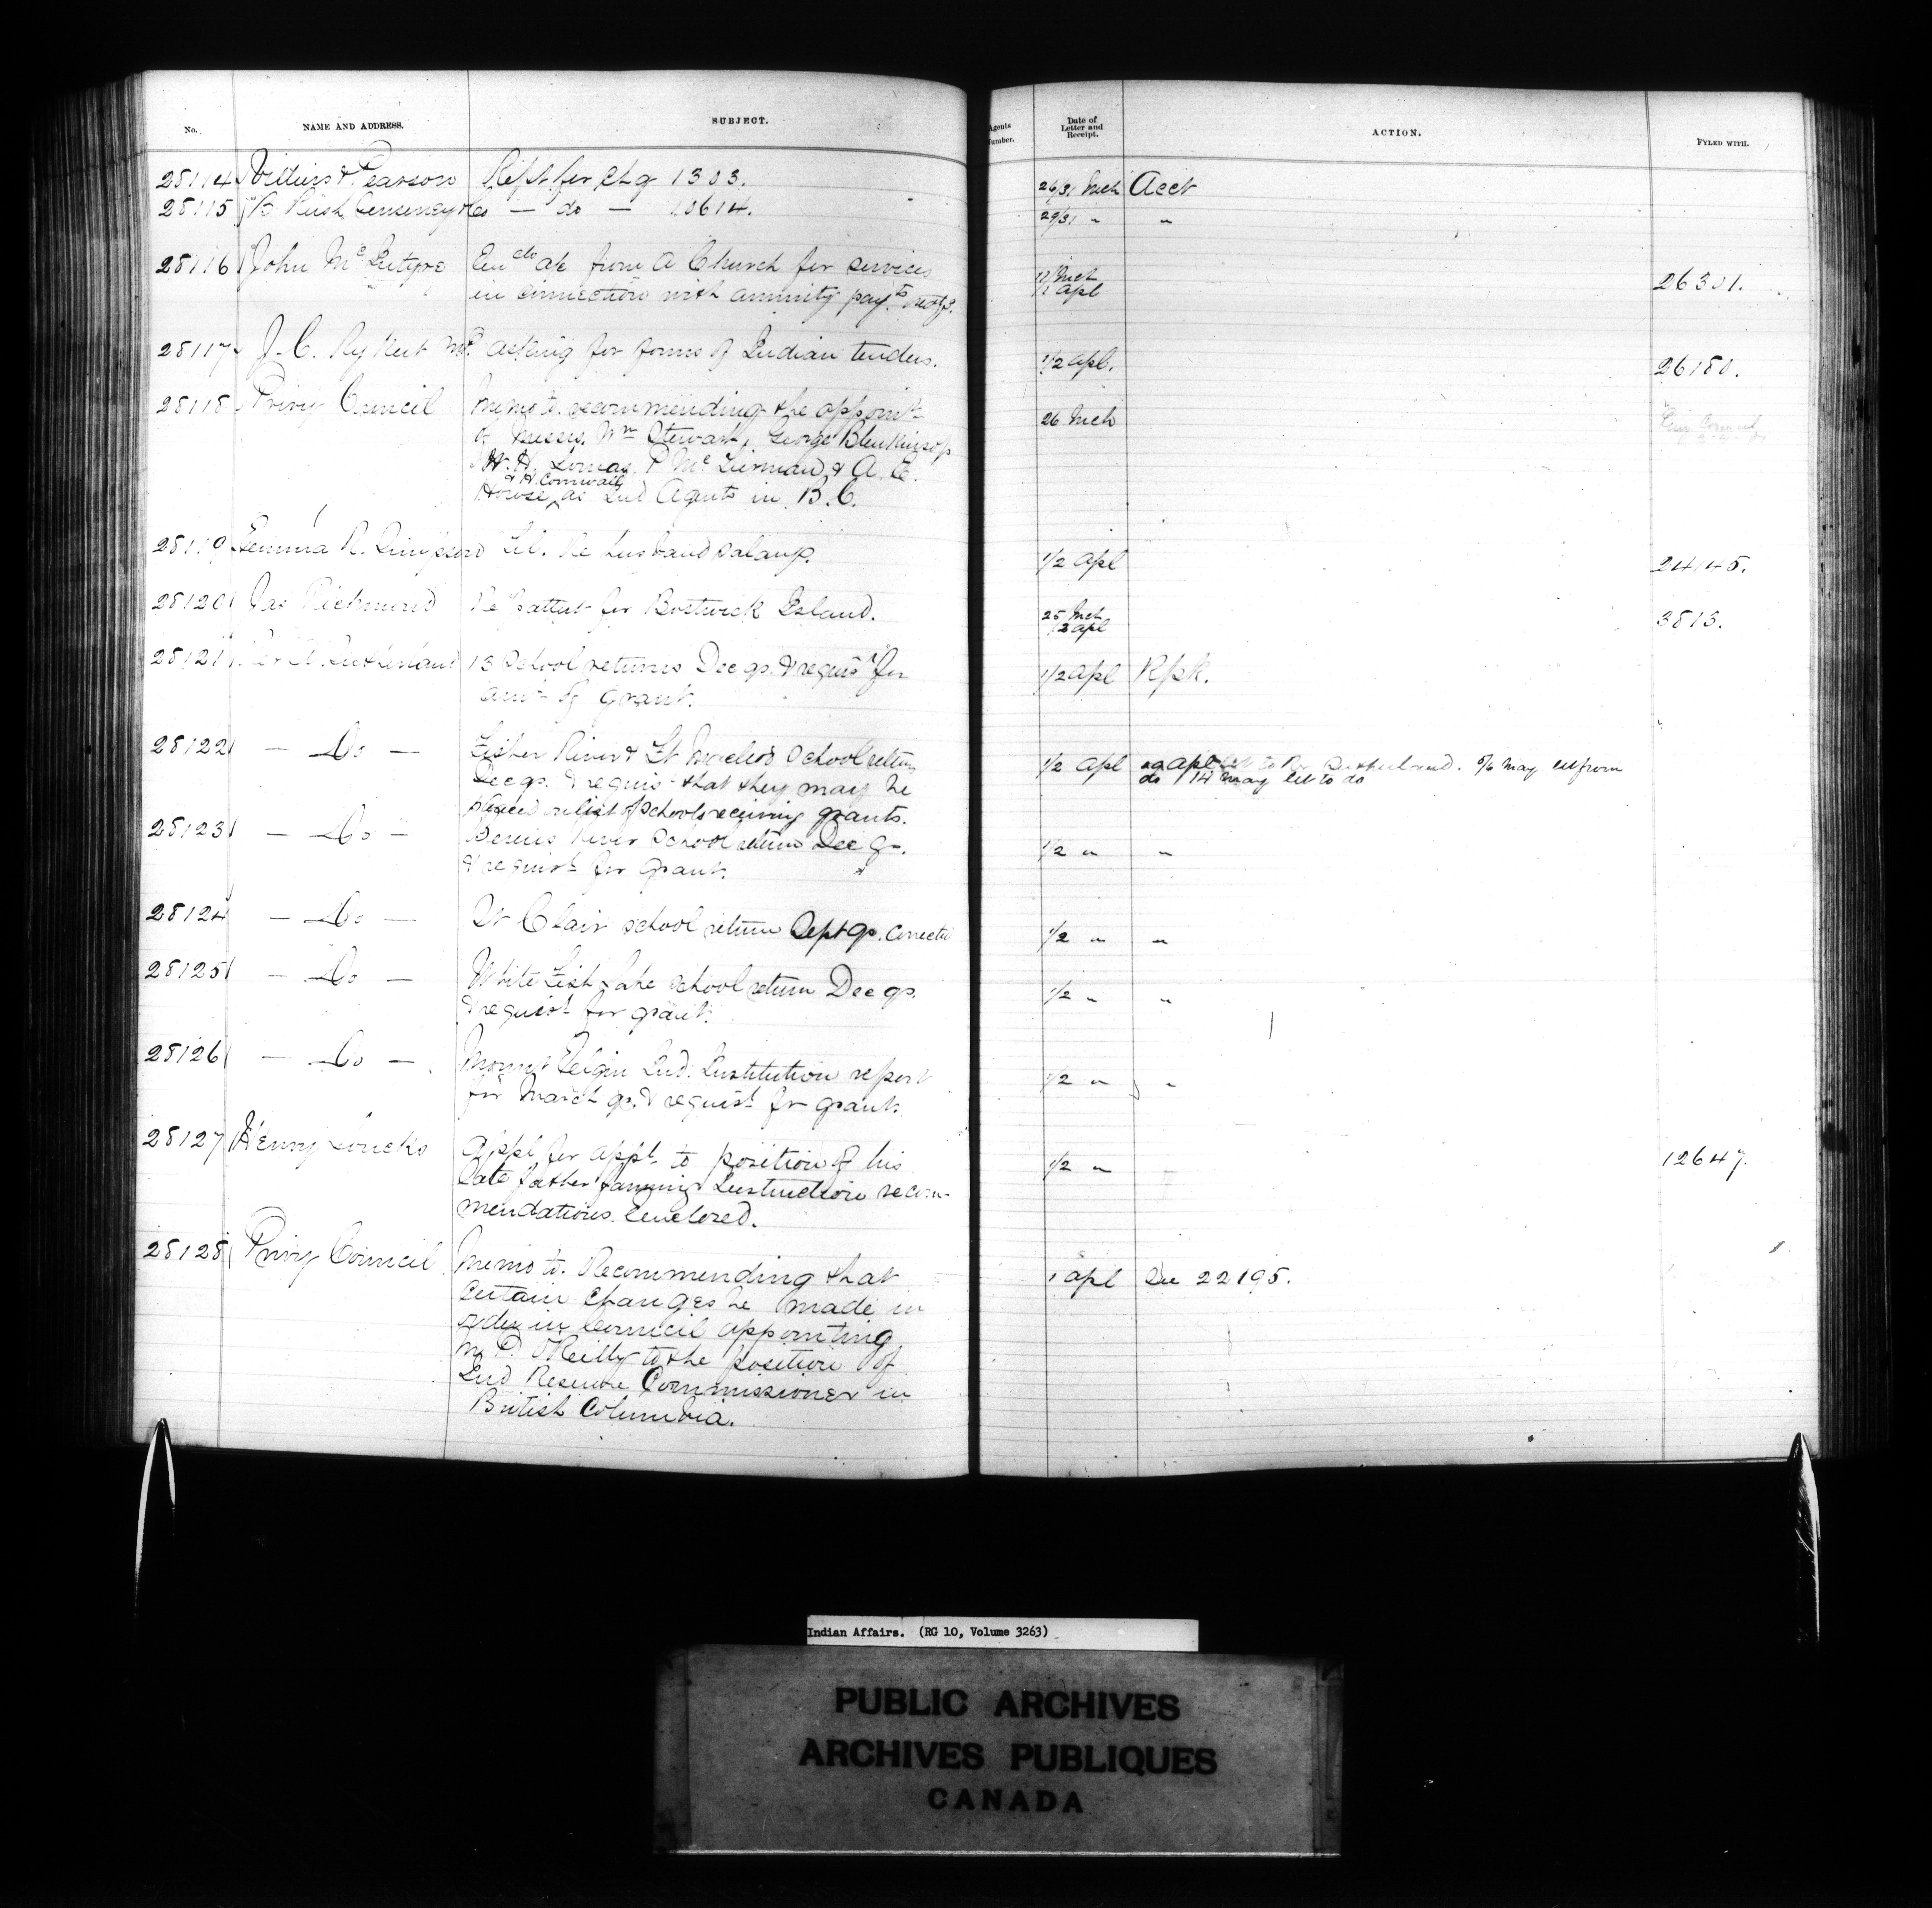 No. NAME AND ADDRESS. SUBJECT. Agents Number. Date of Letter and Receipt. ACTION. FYLED WITH.
28114 & Pearson Rept for chq 1303. 26/31 Mch Acct
28115 B. Rush & Co — do — 10614. 29/31 " "
28116 John McIntyre Encdo a/c from A Church for services
in connection with annuity payts 1/1 Apl 26301.
28117 J. C. Rykert MP. asking for forms of Indian tenders. 1/2 Apl. 26180.
28118 Privy Council Memo to. recommending the appoint
of Messrs. Wm Stewart, George Blenkinsop
W. H. Lomas, P. McTiernan & A. E.
& H. Cornwall
Howse, as Ind Agents in B.C. 26 Mch
28119 Emma R. Simpson Re husband 1/2 Apl 24145.
28120 Jas Richmond Re patent for Bostwick Island. 25 Mch 1/2 Apl 3813.
28121 Rev A. Sutherland 13 School returns Dec qr. & requist for
amt of grant. 1/2 Apl Rpk.
28122 — Do — Fisher River & School return
Dec qr. & requist that they may be
placed on list of schools receiving grants. 1/2 Apl Apl let to Rev Sutherland. 5/6 May let from
do 14 May let to do
28123 — Do — Berens River School return Dec qr.
& requist for grant. 1/2 " "
28124 — Do — St Clair school return Sept qr. corrected 1/2 " "
28125 — Do — White Fish Lake school return Dec qr.
& requist for grant. 1/2 " "
28126 — Do — Mount Elgin Ind. Institution report
for March qr. & requist for grant. 1/2 " "
28127 Henry Loucks Appl for appt to position of his
late father farming Instruction recom-
mendations enclosed. 1/2 " 12647.
28128 Privy Council Memo to. Recommending that
certain changes be made in
order in Council appointing
Mr P. O'Reilly to the position of
Ind Reserve Commissioner in
British Columbia. 1 Apl See 22195.
Indian Affairs. (RG 10, Volume 3263)
PUBLIC ARCHIVES
ARCHIVES PUBLIQUES
CANADA